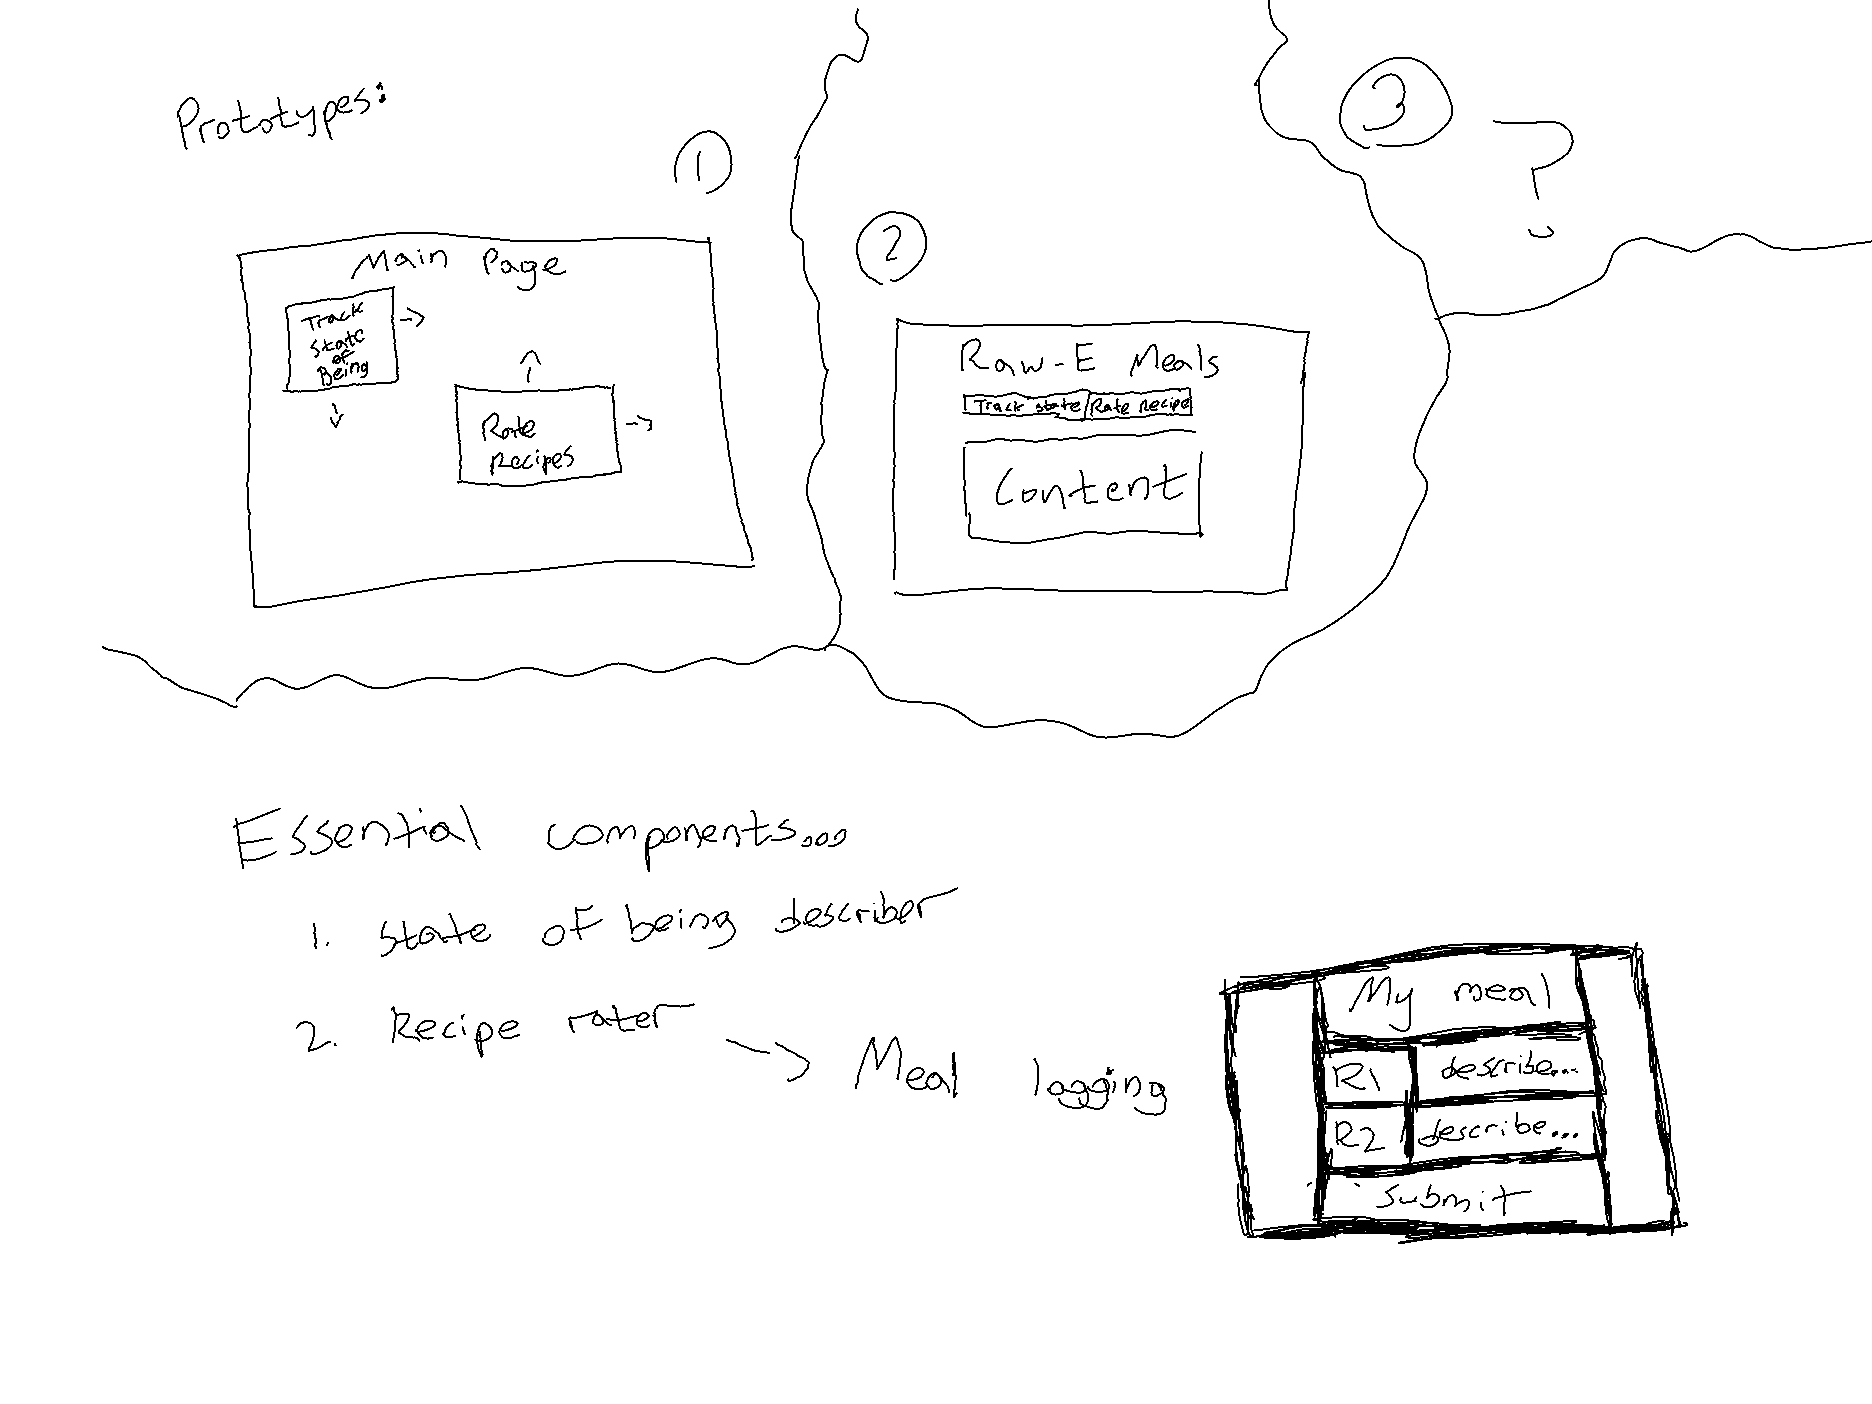 Prototypes:
1
Main Page
Track
State
of
Being
Rate
Recipes
2
Raw-E Meals
Track state
Rate recipe
Content
3
?
Essential components...
1. State of being describer
2. Recipe rater
Meal logging
My meal
R1 describe...
R2 describe...
Submit